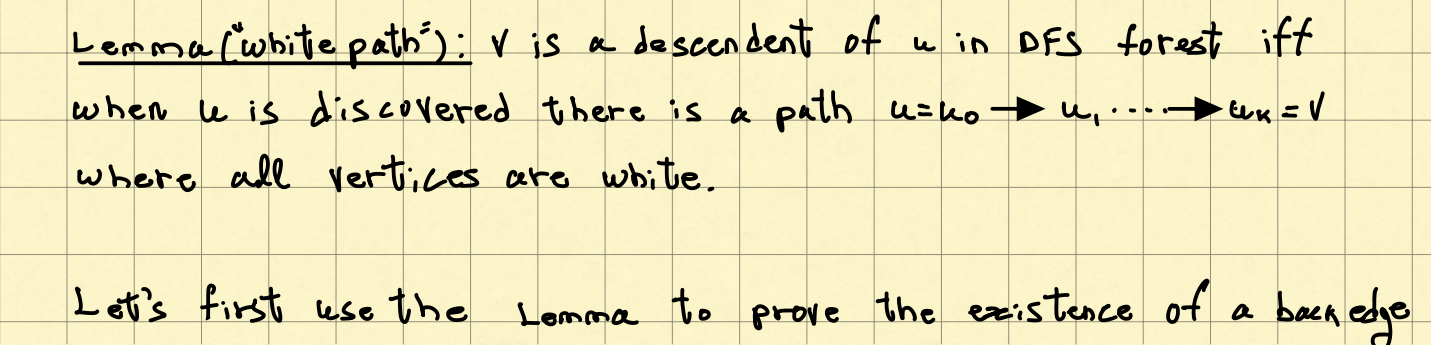 Lemma ("white path"): v is a descendent of u in DFS forest iff
when u is discovered there is a path u=u₀ → u₁ ....→ uₖ = v
where all vertices are white.
Let's first use the Lemma to prove the existence of a back edge